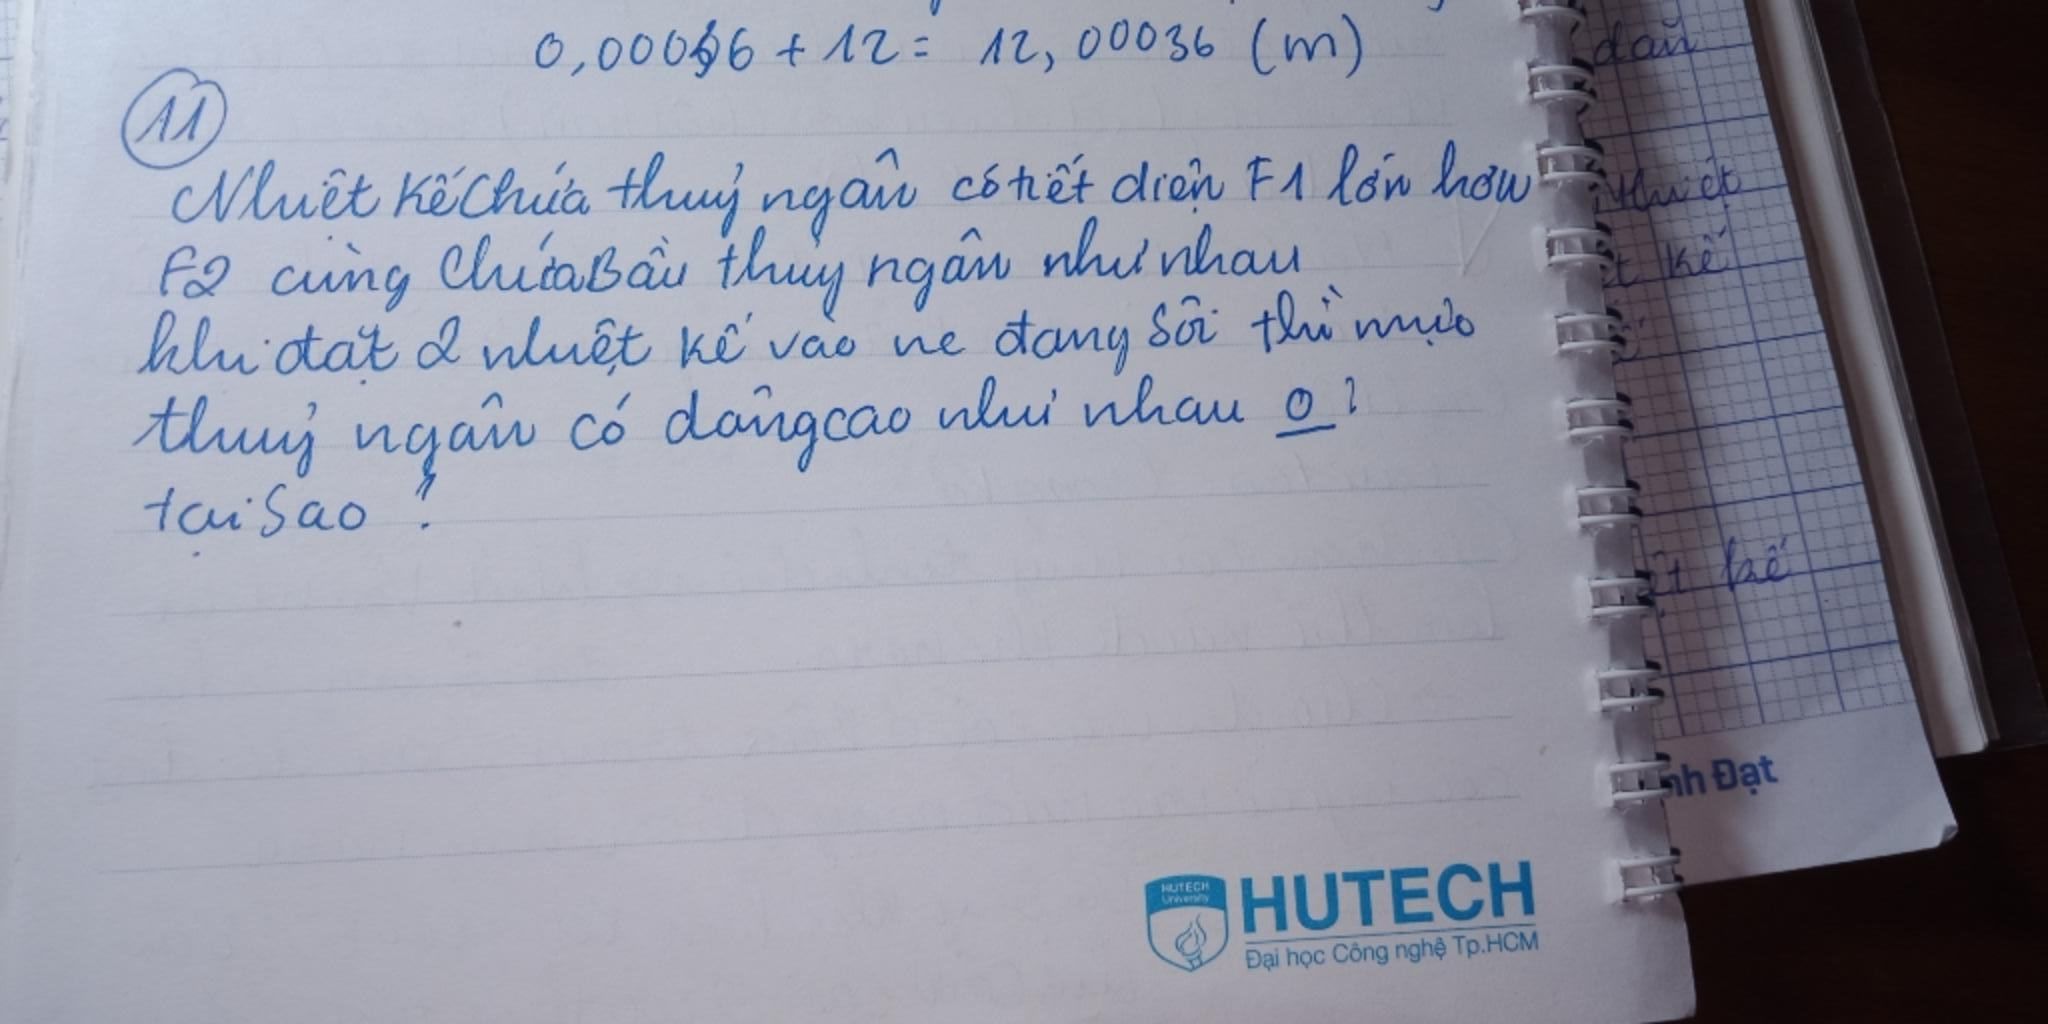 0,00036 + 12 = 12,00036 (m)
11
Nhiệt kế chứa thuỷ ngân có tiết diện F1 lớn hơn
F2 cùng chứa Bầu thuỷ ngân như nhau
khi đặt 2 nhiệt kế vào nc đang sôi thì mực
thuỷ ngân có dâng cao như nhau o?
tại sao?
dãn
nhiệt
t kế
ệt kế
nh Đạt
HUTECH
University
HUTECH
Đại học Công nghệ Tp.HCM